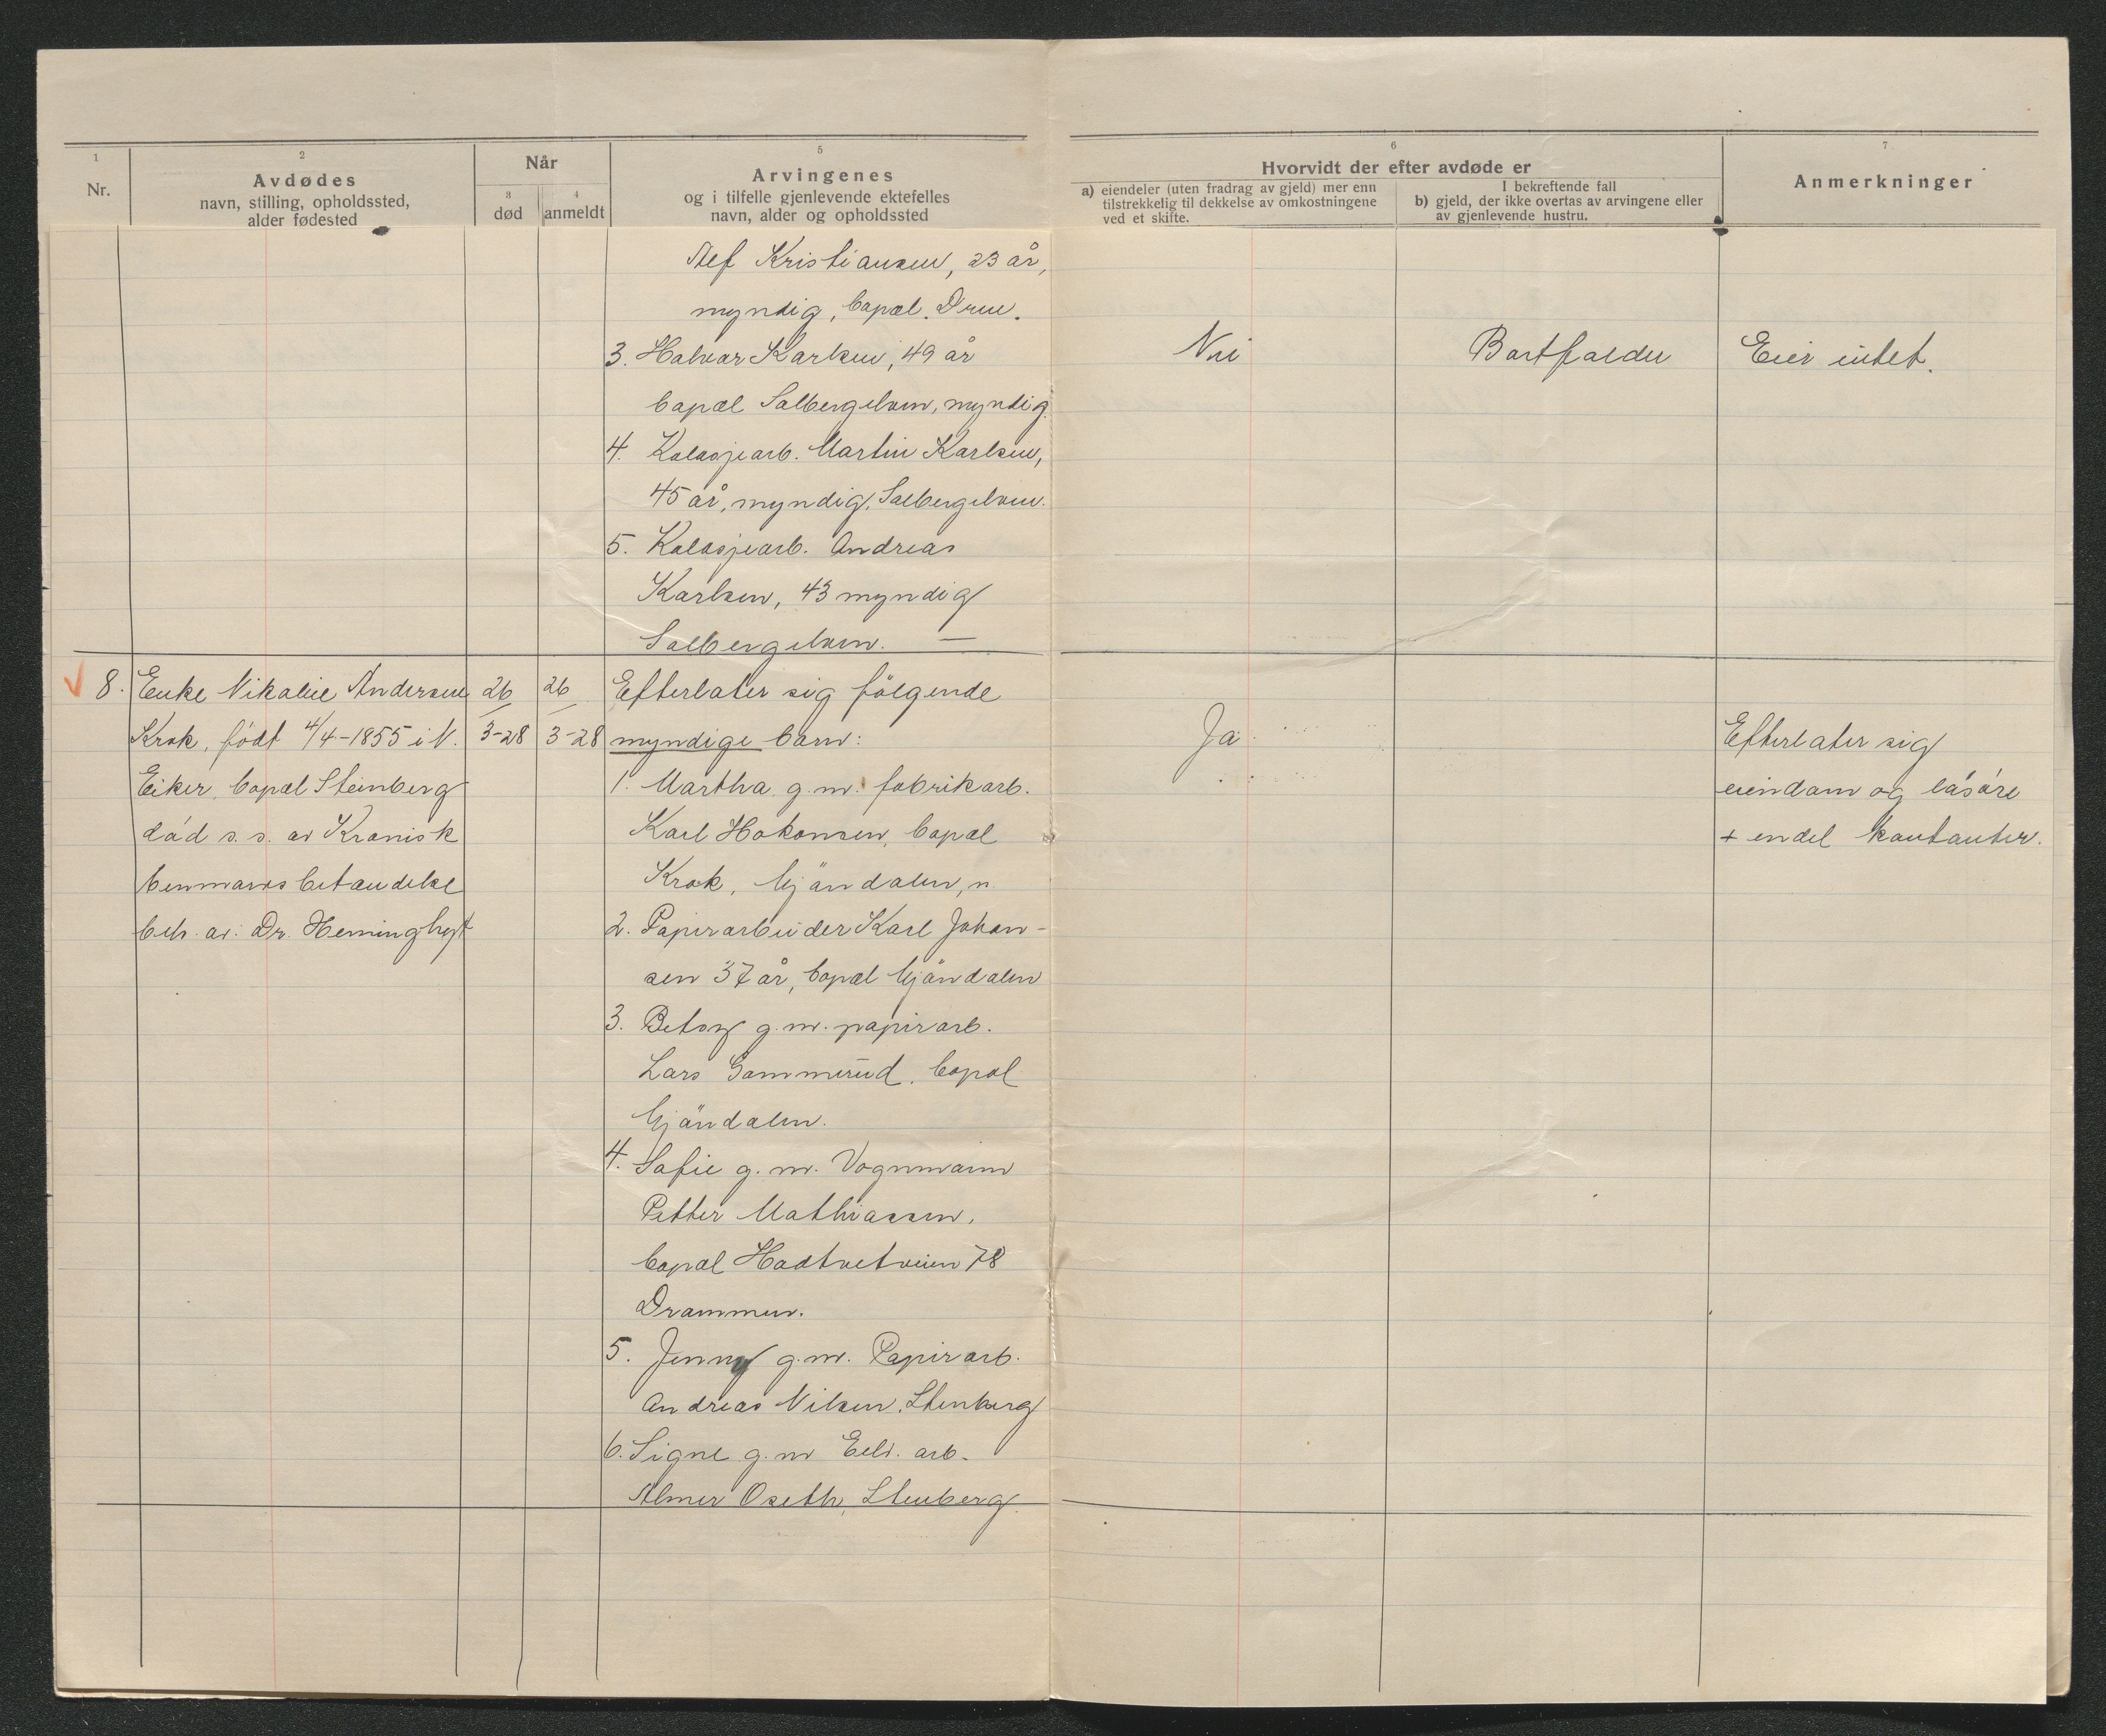 1
Nr.
2
Avdødes
navn, stilling, opholdssted,
alder fødested
Når
3
død
4
anmeldt
5
Arvingenes
og i tilfelle gjenlevende ektefelles
navn, alder og opholdssted
6
Hvorvidt der efter avdøde er
a) eiendeler (uten fradrag av gjeld) mer enn
tilstrekkelig til dekkelse av omkostningene
ved et skifte.
I bekreftende fall
b) gjeld, der ikke overtas av arvingene eller
av gjenlevende hustru.
7
Anmerkninger
Alf Kristiansen, 23 år,
myndig, bopæl. Drm.
3. Halvar Karlsen, 49 år
bopæl Solbergelven, myndig.
4. Kolosjearb. Martin Karlsen,
45 år, myndig, Solbergelven.
5. Kolosjearb. Andreas
Karlsen, 43 myndig
Solbergelven. —
Nei
Bortfalder
Eier intet.
8. Enke Nikoline Andersen
Krok, født 4/4-1855 i N.
Eiker, bopæl Steinberg
død s. s. av Kronisk
benmarvsbetændelse
beh. av: Dr. Heminghyt
26/3-28
26/3-28
Efterlater sig følgende
myndige barn:
1. Martha g.m. fabrikarb.
Karl Hokonsen, bopæl
Krok, Mjöndalen, n.
2. Papirarbeider Karl Johan-
sen 37 år, bopæl Mjöndalen
3. Betsy g.m. papirarb.
Lars Gommerud. bopæl
Mjöndalen.
4. Sofie g. m. Vognmann
Petter Mathiassen,
bopæl Hodtvetveien 78
Drammen.
5. Jenny g.m. Papirarb.
Andreas Nilsen, Stenberg
6. Signe g.m arb.
Almer Oseth, Stenberg
Ja
Efterlater sig
eiendom og løsøre
+ endel kontanter.